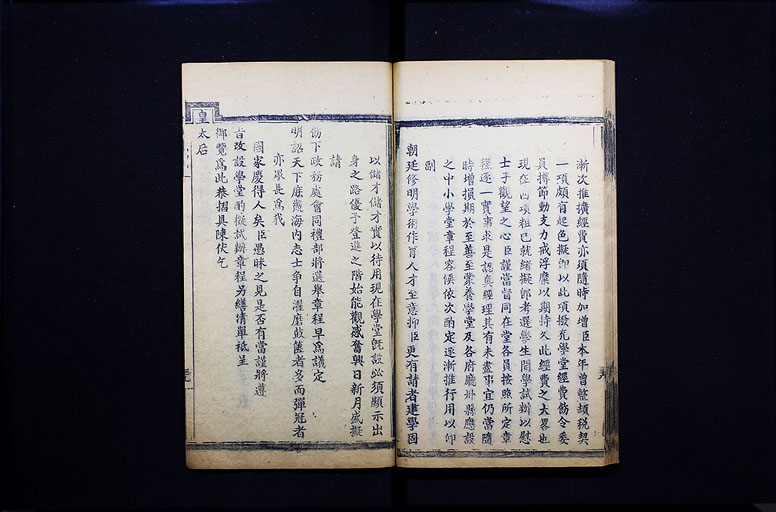 漸次推擴經費亦須隨時加增臣本年曾整頓稅契
一項頗有起色擬卽以此項撥充學堂經費飭令委
員撙節動支力戒浮糜以期持久此經費之大畧也
現在四項粗已就緒擬卽考選學生開學試辦以慰
士子觀望之心臣謹當督同在堂各員按照所定章
程逐一實事求是認眞經理其有未盡事宜仍當隨
時增損期於至善至蒙養學堂及各府廳州縣應設
之中小學堂章程容俟依次酌定逐漸推行用以仰
副
朝廷修明學術作育人才至意抑臣更有請者建學固
以儲才儲才實以待用現在學堂旣設必須顯示出
身之路優予登進之階始能觀感奮興日新月盛擬
請
飭下政務處會同禮部將選舉章程早爲議定
明詔天下庶幾海內志士爭自濯磨鼓篋者多而彈冠者
亦衆長爲我
國家慶得人矣臣愚昧之見是否有當謹將遵
旨改設學堂酌擬試辦章程另繕清單祗呈
御覽爲此恭摺具陳伏乞
皇
太后